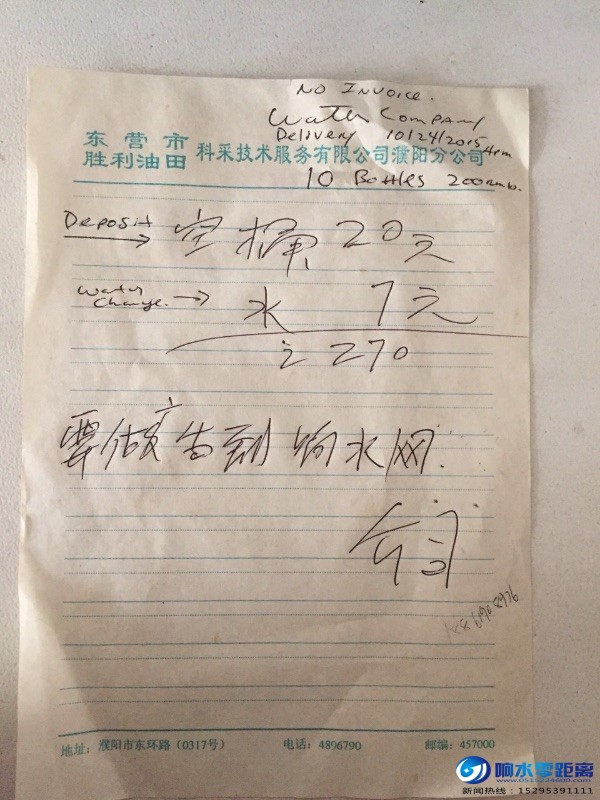 NO INVOICE.
Water Company
Delivery 10/24/2015 4pm
东营市
胜利油田 科采技术服务有限公司濮阳分公司
10 Bottles 200rmb.
Deposit → 空桶 20元
Water Charge. → 水 7元
270
要做广告到响水网.
地址：濮阳市东环路（0317号） 电话：4896790 邮编：457000
响水零距离
新闻热线：15295391111